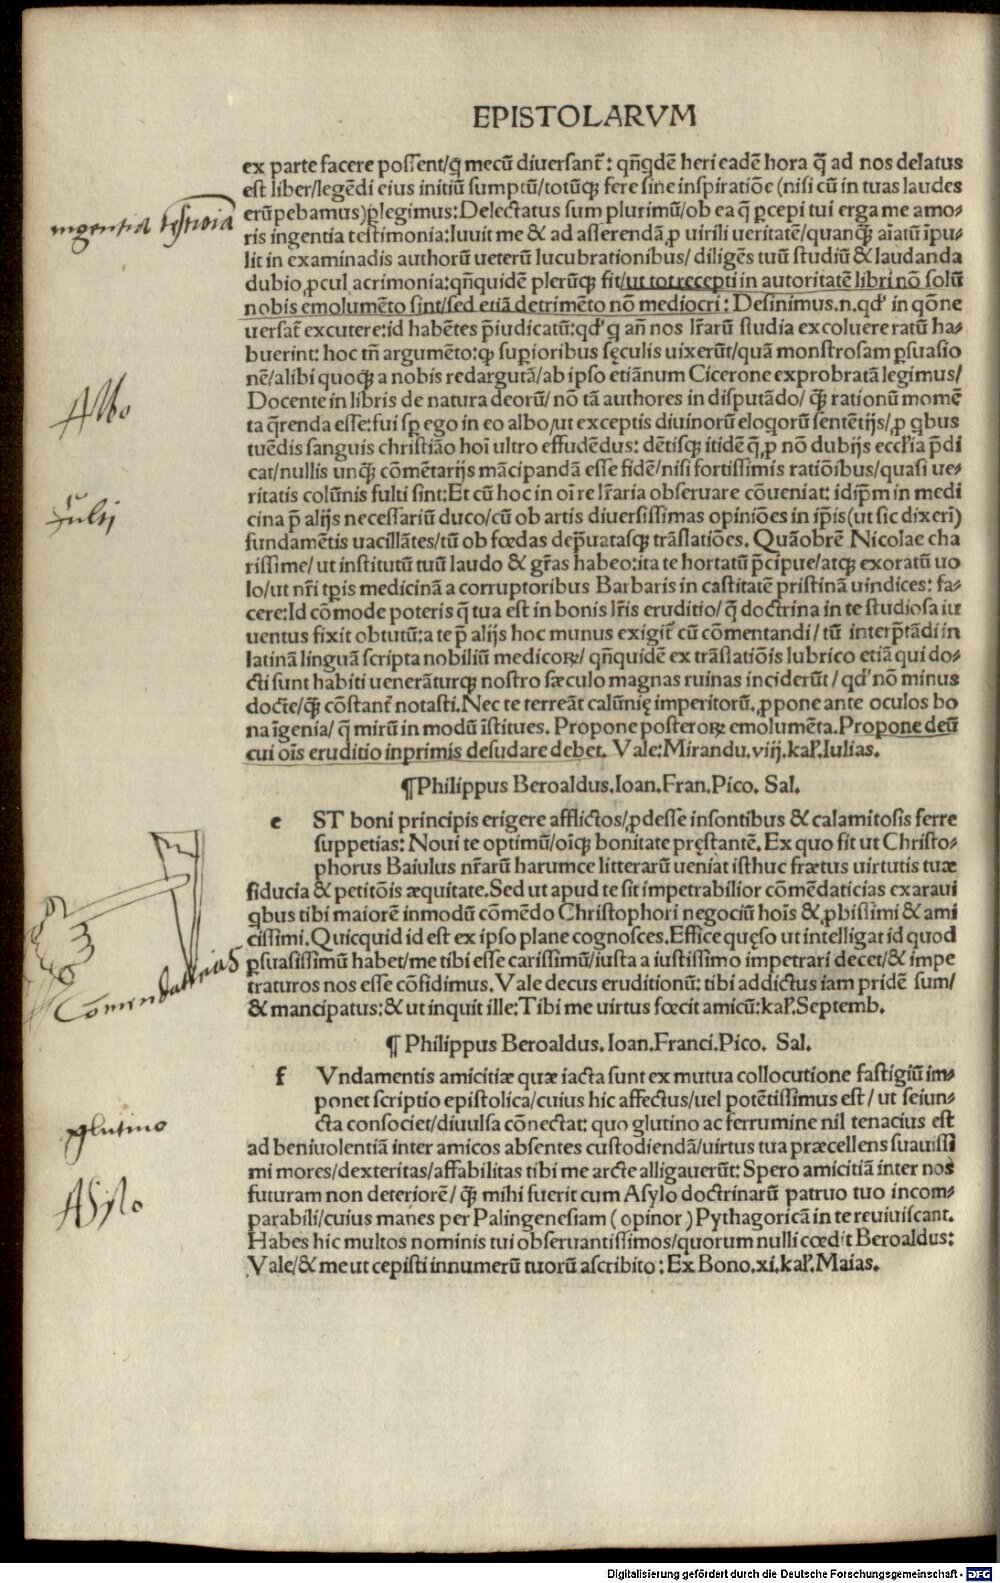 EPISTOLARVM
ex parte facere possent/q̃ mecũ diuersant᷑: qñqdẽ heri eadẽ hora q̃ ad nos delatus
est liber/legẽdi eius initiũ sumptũ/totũqꝫ fere sine inspiratiõe (nisi cũ in tuas laudes
erũpebamus)ꝑlegimus: Delectatus sum plurimũ/ob ea q̃ ꝑcepi tui erga me amo⸗
ris ingentia testimonia: Iuuit me & ad asserendã ꝓ uirili ueritatẽ/quanqꝫ̃ aĩatũ ĩpu⸗
lit in examinadis authorũ ueterũ lucubrationibus/ diligẽs tuũ studiũ & laudanda
dubio ꝓcul acrimonia: qñquidẽ plerũqꝫ fit/ut tot recepti in autoritatẽ libri nõ solũ
nobis emolumẽto sint/sed etiã detrimẽto nõ mediocri: Desinimus.n.qd' in qõne
uersat᷑ excutere: id habẽtes p̃iudicatũ: qd' q añ nos lr̃arũ studia excoluere ratũ ha⸗
buerint: hoc tm̃ argumẽto: qꝫ suꝑioribus sęculis uixerũt/quã monstrosam ꝑsuasio
nẽ/alibi quoqꝫ a nobis redargutã/ab ipso etiãnum Cicerone exprobratã legimus/
Docente in libris de natura deorũ/ nõ tã authores in disputãdo/ qꝫ̃ rationũ momẽ
ta q̃renda esse: fui sꝑ ego in eo albo/ut exceptis diuinorũ eloqorũ sentẽtijs/ꝓ qbus
tuẽdis sanguis christião hoĩ ultro effudẽdus: dẽtisqꝫ itidẽ q̃ ꝓ nõ dubijs eccl'ia p̃di
cat/nullis unqꝫ̃ cõmẽtarijs mãcipandã esse fidẽ/nisi fortissimis ratiõibus/quasi ue⸗
ritatis colũnis fulti sint: Et cũ hoc in oĩ re lr̃aria obseruare cõueniat: idip̃m in medi
cina p̃ alijs necessariũ duco/cũ ob artis diuersissimas opiniões in ip̃is (ut sic dixerĩ)
fundamẽtis uacillãtes/tũ ob fœdas dep̃uatasqꝫ trãslatiões. Quãobrẽ Nicolae cha
rissime/ ut institutũ tuũ laudo & gr̃as habeo: ita te hortatũ p̃cipue/atqꝫ exoratũ uo
lo/ut nr̃i tꝑis medicinã a corruptoribus Barbaris in castitatẽ pristinã uindices: fa⸗
cere: Id cõmode poteris q̃ tua est in bonis lr̃is eruditio/ q̃ doctrina in te studiosa iu
uentus fixit obtutũ: a te p̃ alijs hoc munus exigit᷑ cũ cõmentandi/ tũ interp̃tãdi in
latinã linguã scripta nobiliũ medicoꝝ/ qñquidẽ ex trãslatiõis lubrico etiã qui do⸗
cti sunt habiti uenerãturqꝫ nostro sæculo magnas ruinas inciderũt/ qd' nõ minus
docte/qꝫ̃ cõstant᷑ notasti. Nec te terreãt calũnię imperitorũ. ꝓpone ante oculos bo
na ĩgenia/ q̃ mirũ in modũ ĩstitues. Propone posteroꝝ emolumẽta. Propone deũ
cui oĩs eruditio inprimis desudare debet. Vale: Mirandu. viij. kal'. Iulias.
¶Philippus Beroaldus. Ioan. Fran. Pico. Sal.
e ST boni principis erigere afflictos/ꝓdesse insontibus & calamitosis ferre
suppetias: Noui te optimũ/oĩqꝫ bonitate pręstantẽ. Ex quo fit ut Christo⸗
phorus Baiulus nr̃arũ harumce litterarũ ueniat isthuc frætus uirtutis tuæ
fiducia & petitõis æquitate. Sed ut apud te sit impetrabilior cõmẽdaticias exaraui
qbus tibi maiorẽ inmodũ cõmẽdo Christophori negociũ hoĩs & ꝓbissimi & ami
cissimi. Quicquid id est ex ipso plane cognosces. Effice quęso ut intelligat id quod
ꝑsuasissimũ habet/me tibi esse carissimũ/iusta a iustissimo impetrari decet/& impe
traturos nos esse cõfidimus. Vale decus eruditionũ: tibi addictus iam pridẽ sum/
& mancipatus: & ut inquit ille: Tibi me uirtus fœcit amicũ: kal'. Septemb.
¶ Philippus Beroaldus. Ioan. Franci. Pico. Sal.
f Vndamentis amicitiæ quæ iacta sunt ex mutua collocutione fastigiũ im⸗
ponet scriptio epistolica/cuius hic affectus/uel potẽtissimus est/ ut seiun⸗
cta consociet/diuulsa cõnectat: quo glutino ac ferrumine nil tenacius est
ad beniuolentiã inter amicos absentes custodiendã/uirtus tua præcellens suauissi
mi mores/dexteritas/affabilitas tibi me arcte alligauerũt: Spero amicitiã inter nos
futuram non deteriorẽ/ qꝫ̃ mihi fuerit cum Asylo doctrinarũ patruo tuo incom⸗
parabili/cuius manes per Palingenesiam (opinor) Pythagoricã in te reuiuiscant.
Habes hic multos nominis tui obseruantissimos/quorum nulli cœdit Beroaldus:
Vale/& me ut cepisti innumerũ tuorũ ascribito: Ex Bono. xi. kal'. Maias.
ingentia testimõia
Albo
Julij
Comendaticias
glutino
Asylo
Digitalisierung gefördert durch die Deutsche Forschungsgemeinschaft - DFG